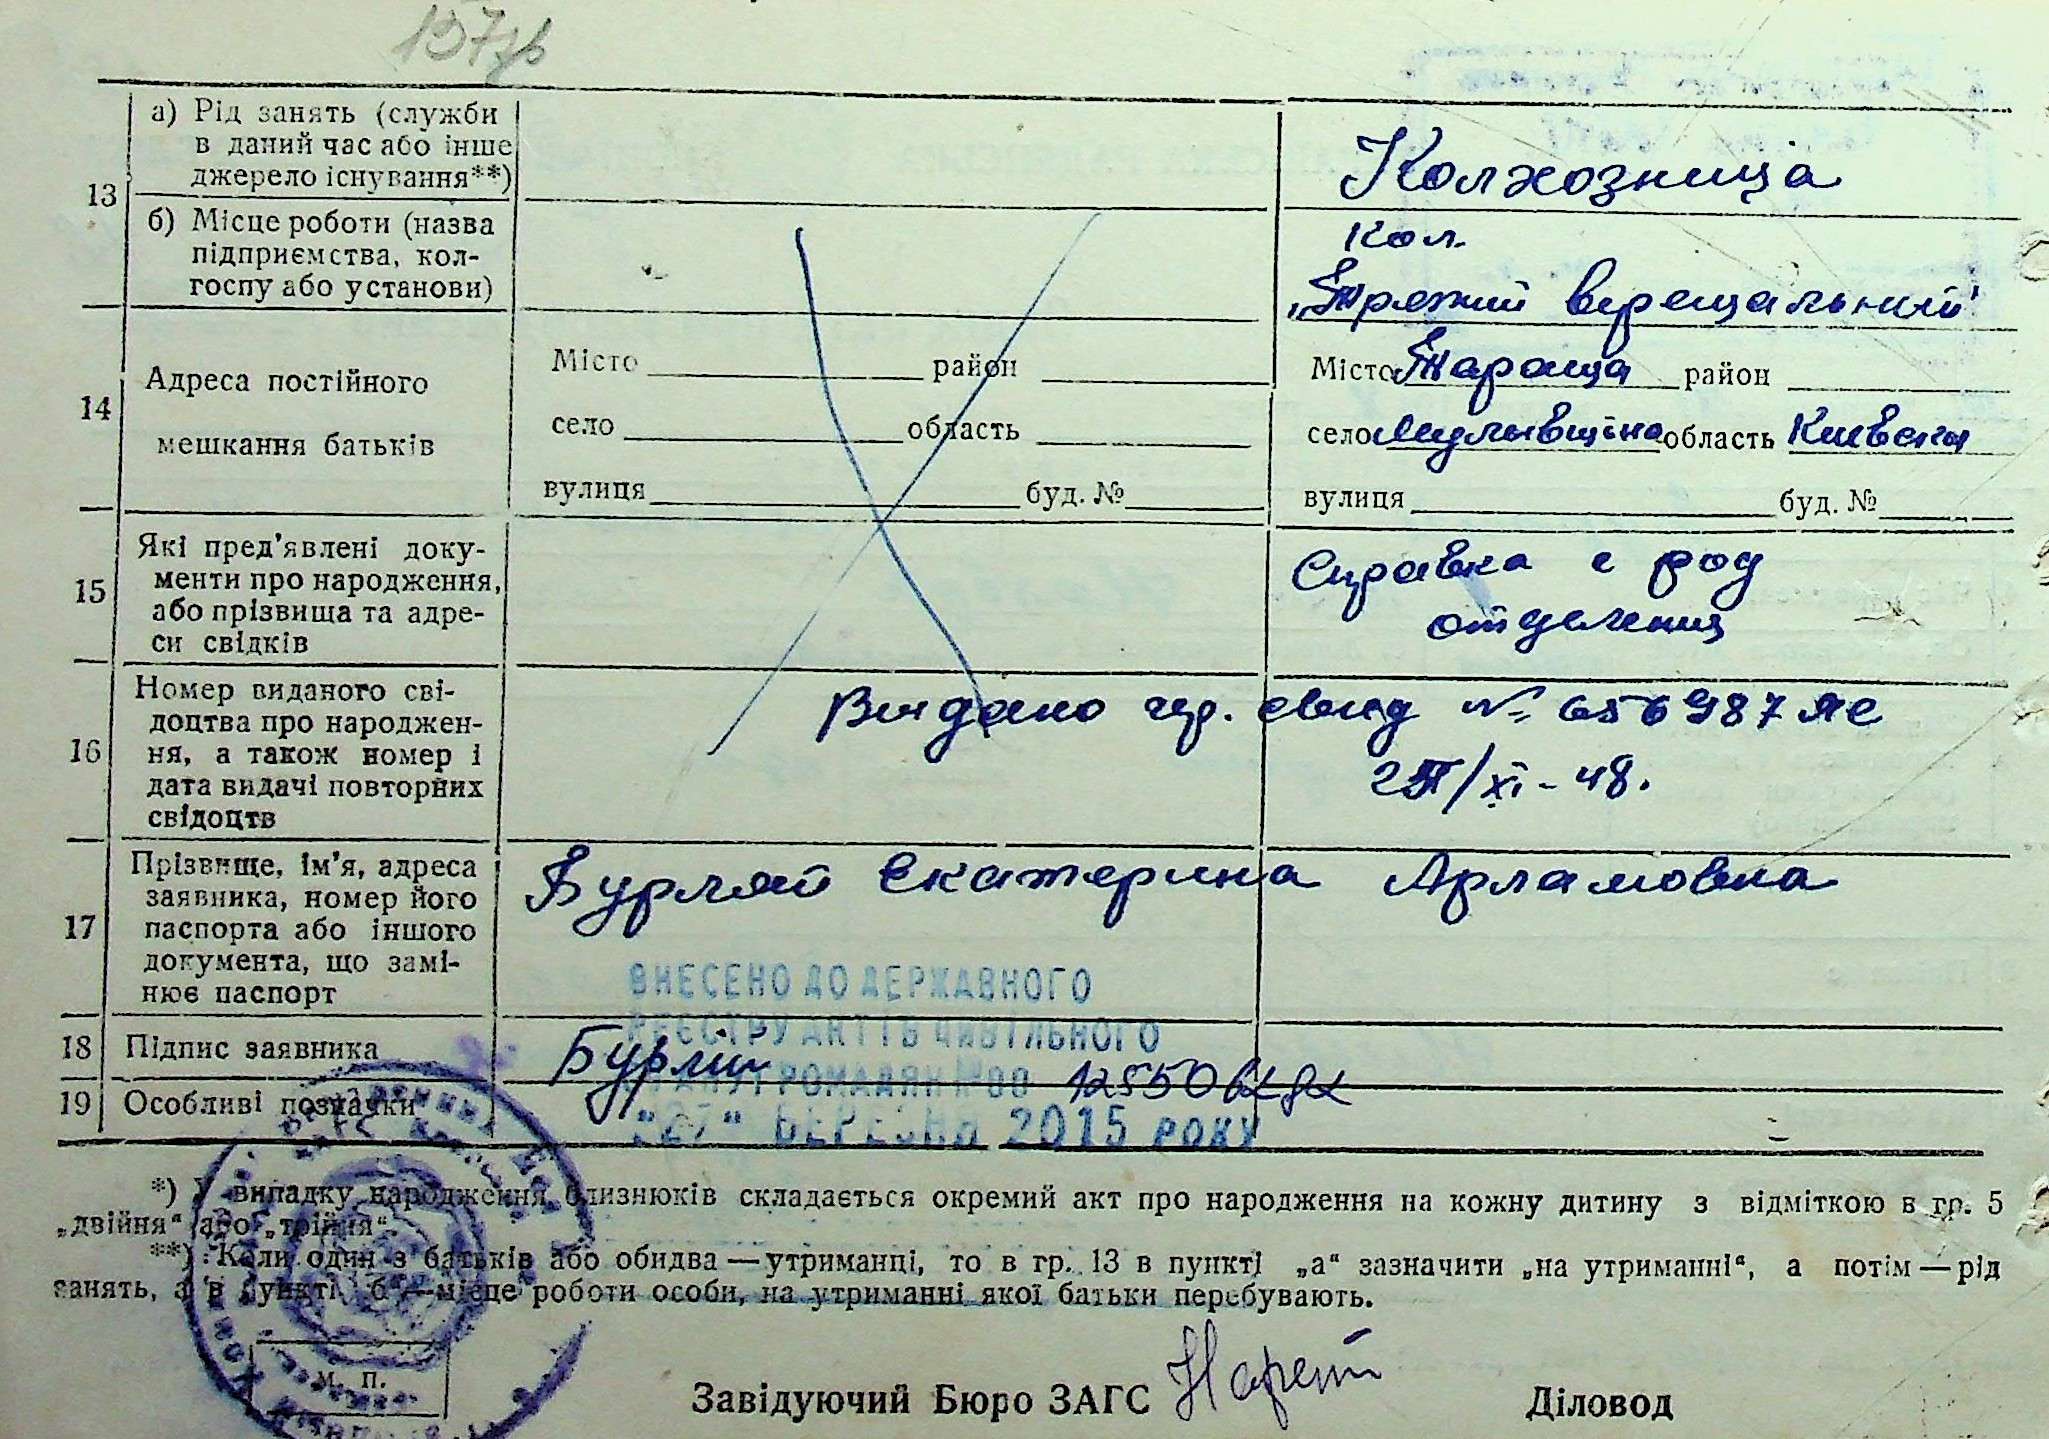 157зв
13
а) Рід занять (служби
в даний час або інше
джерело існування**)
Колхозница
б) Місце роботи (назва
підприємства, кол-
госпу або установи)
Кол.
„Третий вірешальний"
14
Адреса постійного
мешкання батьків
Місто район
село область
вулиця буд. №
Місто Тараща район
село Лулывщина область Киевск
вулиця буд. №
15
Які пред'явлені доку-
менти про народження,
або прізвища та адре-
си свідків
Справка с род
отделения
16
Номер виданого сві-
доцтва про народжен-
ня, а також номер і
дата видачі повторних
свідоцтв
Видано гр. свид № 656987 ЯС
/XI-48.
17
Прізвище, ім'я, адреса
заявника, номер його
паспорта або іншого
документа, що замі-
нює паспорт
Бурлай Екатерина Арламовна
ВНЕСЕНО ДО ДЕРЖАВНОГО
РЕЄСТРУ АКТІВ ЦИВІЛЬНОГО
СТАНУ ГРОМАДЯН №00 12550
"27" БЕРЕЗНЯ 2015 РОКУ
18 Підпис заявника
19 Особливі позначки
*) У випадку народження близнюків складається окремий акт про народження на кожну дитину з відміткою в гр. 5
„двійня" або „трійня"
**) Коли один з батьків або обидва — утриманці, то в гр. 13 в пункті „а" зазначити „на утриманні", а потім — рід
занять, а в пункті „б" — місце роботи особи, на утриманні якої батьки перебувають.
м. п.
Завідуючий Бюро ЗАГС
Діловод